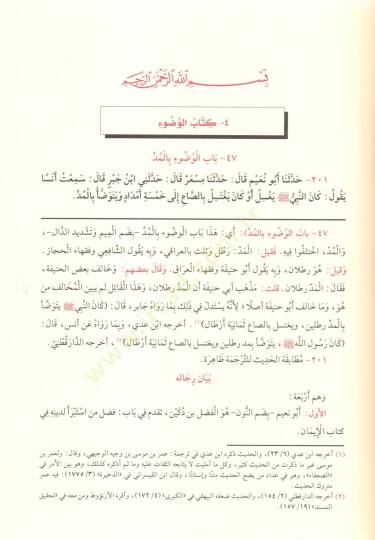 بِسْمِ اللهِ الرَّحْمٰنِ الرَّحِيمِ
٤- كِتَابُ الوُضُوءِ
٤٧- بَابُ الْوُضُوءِ بِالْمُدِّ
٢٠١- حَدَّثَنَا أَبُو نُعَيْمٍ قَالَ: حَدَّثَنَا مِسْعَرٌ قَالَ: حَدَّثَنِي ابْنُ جَبْرٍ قَالَ: سَمِعْتُ أَنَسًا
يَقُولُ: كَانَ النَّبِيُّ ﷺ يَغْسِلُ أَوْ كَانَ يَغْتَسِلُ بِالصَّاعِ إِلَى خَمْسَةِ أَمْدَادٍ وَيَتَوَضَّأُ بِالْمُدِّ.
٤٧- بابُ الوُضُوءِ بِالمُدِّ): أي: هَذَا بَاب الوضُوءِ بِالْمُدِّ -بضم الميم وتشديد الدَّال-،
وَالْمُدّ، اختلفوا فِيهِ. فَقيل: الْمَدّ: رَطْل وثلث بالعراقي، وَبِه يَقُول الشَّافِعِي وفقهاء الْحجاز.
وَقيل: هُوَ رطلان، وَبِه يَقُول أَبُو حنيفَة وفقهاء الْعرَاق. وَقَالَ بَعضهم: وَخَالف بعض الْحَنَفِيَّة،
فَقَالَ: الْمَدّ رطلان. قلت: مَذْهَب أبي حنيفَة أَن الْمَدّ رطلان، وَهَذَا الْقَائِل لم يبين الْمُخَالف من
هُوَ، وَمَا خَالف أَبُو حنيفَة أصلا؛ لِأَنَّهُ يَسْتَدل فِي ذَلِك بِمَا رَوَاهُ جَابر، قَالَ: (كَانَ النَّبِي ﷺ يتَوَضَّأ
بِالْمدِّ رطلين، ويغتسل بالصاع ثَمَانِيَة أَرْطَال)(١). أخرجه ابن عدي، وَبِمَا رَوَاهُ عَن أنس، قَالَ:
(كَانَ رَسُول الله ﷺ، يتَوَضَّأ بمد رطلين ويغتسل بالصاع ثَمَانِيَة أَرْطَال)(٢)، أخرجه الدَّارَقُطْنِيّ.
٢٠١- مُطَابقَة الحَدِيث للتَّرْجَمَة ظَاهِرَة.
بَيَان رِجَاله
وهم أَرْبَعَة:
الأول: أَبُو نعيم -بضم النُّون- هُوَ الْفضل بن دُكَيْن، تقدم فِي بَاب: فضل من اسْتَبْرَأَ لدينِهِ فِي
كتاب الْإِيمَان.
(١) أخرجه ابن عدي (٦/٢٣)، والحديث ذكره ابن عدي في ترجمة: عمر بن موسى بن وجيه الوجيهي، وقال: ولعمر بن
موسى غير ما ذكرت من الحديث كثير، وكل ما أمليت لا يتابعه الثقات عليه وما لم أذكره كذلك، وهو بين الأمر في
«الضعفاء»، وهو في عداد من يضع الحديث متنًا وإسنادًا. وقال ابن القيسراني في «الذخيرة» (٣/١٧٧٥): فيه عمر
متروك الحديث.
(٢) أخرجه الدارقطني (٢/١٥٤)، والحديث ضعفه البيهقي في «الكبرى» (٤/١٧٢)، وأقره الأرنؤوط ومن معه في «تحقيق
المسند» (١٩/١٥٧).